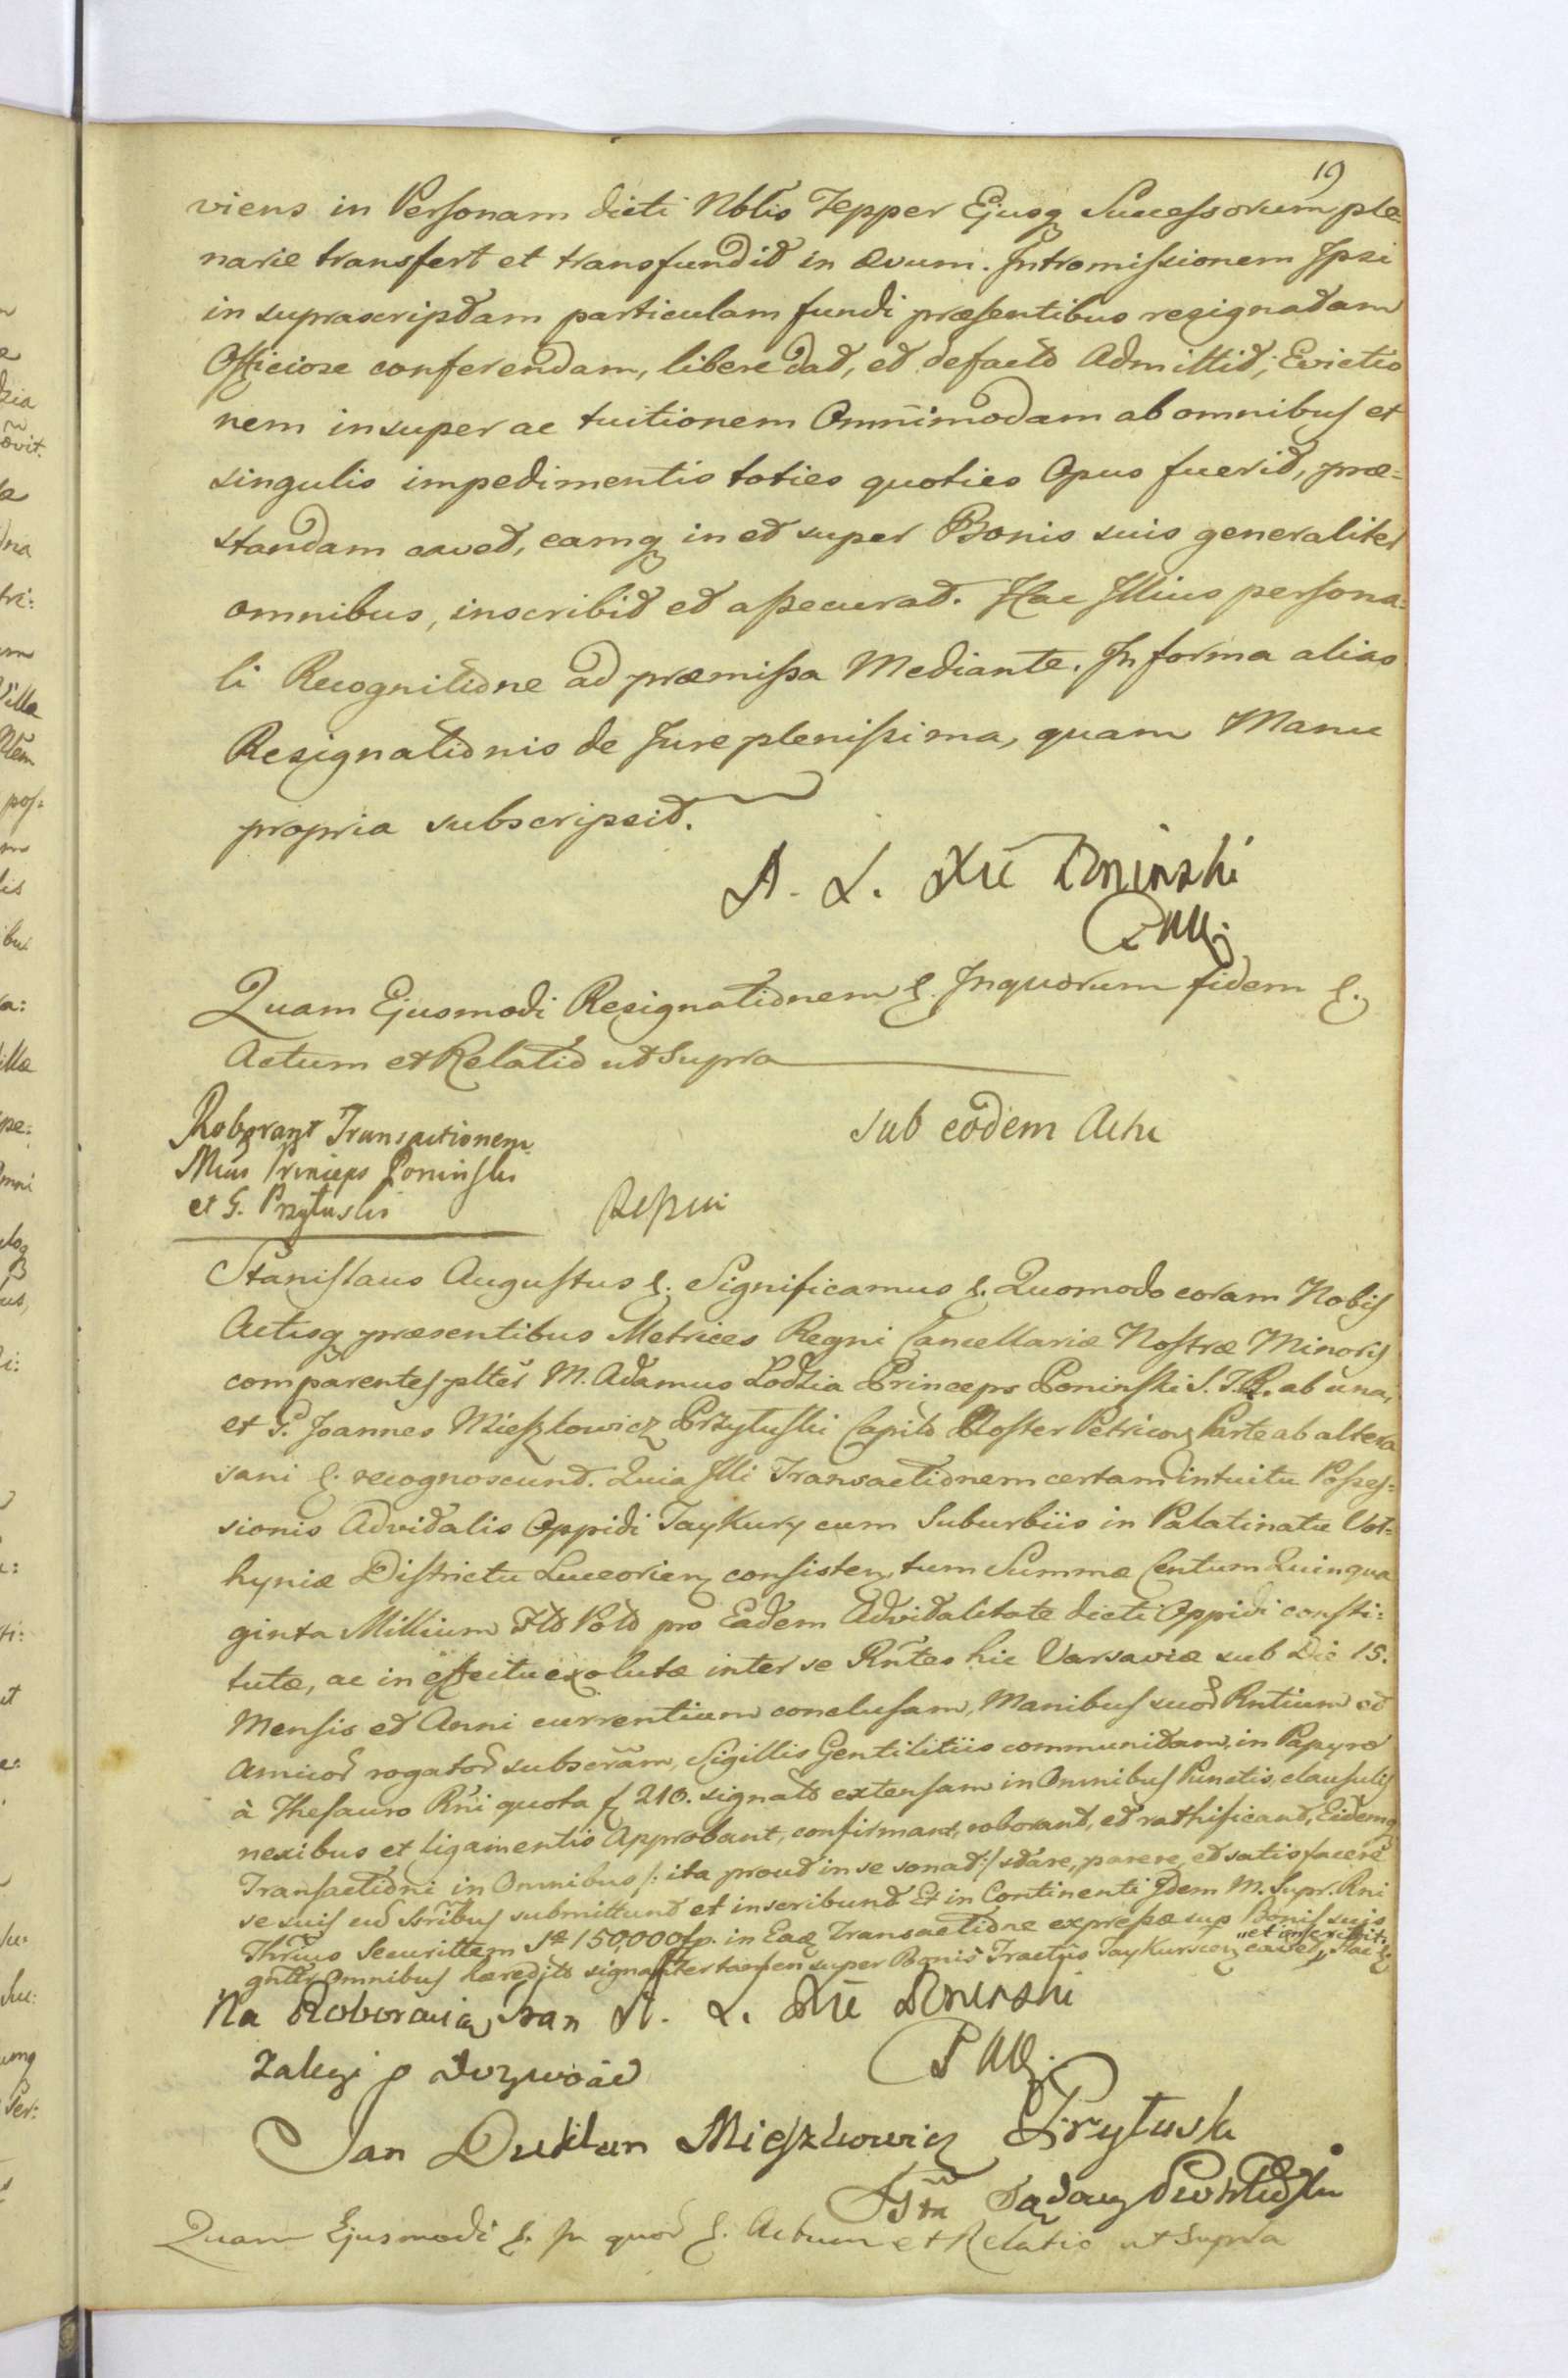 19
viens in Personam dicti Nblis Tepper Ejusq Successorum ple-
narie transfert et transfundit in ævum. Intromissionem Ipsi
in suprascriptam particulam fundi præsentibus resignatam
Officiose conferendam, libere dat, et defacto Admittit, Evictio
nem insuper ac tuitionem Omnimodam ab omnibus et
singulis impedimentis toties quoties Opus fuerit, præ-
standam cavet, eamq in et super Bonis suis generaliter
omnibus, inscribit et assecurat. Hac Illius persona-
li Recognitione ad præmissa Mediante. In forma alias
Resignationis de Jure plenissima, quam Manu
propria subscripsit.
A. L. Xże Poninski
Quam Ejusmodi Resignationem &. Inquorum fidem &.
Actum et Relatio ut Supra
Roborant Transactionem
Mcus Princeps Poninski
et G. Przyłuski
Sub eodem Actu
Stanislaus Augustus &. Significamus &. Quomodo coram Nobis
Actisq præsentibus Metrices Regni Cancellariæ Nostræ Minoris
comparentes plter M. Adamus Łodzia Princeps Poninski S. T. R. ab una,
et G. Joannes Mieszkowicz Przyłuski Capito Noster Petricov Parte ab altera
sani &. recognoscunt. Quia Illi Transactionem certam intuitu Posses-
sionis Advitalis Oppidi Taykury cum Suburbiis in Palatinatu Vol-
hyniæ Districtu Luceorien consisten, tum Summæ Centum Quinqua
ginta Millium Flo Polo pro Eadem Advitalitate dicti Oppidi consti-
tutæ, ac in effectu exolutæ inter se Rntes hic Varsaviæ sub Die 15.
Mensis et Anni currentium conclusam, Manibus suor Rntium et
Amicor rogator subscram, Sigillis Gentilitiis communitam, in Papyro
à Thesauro Rni quota f 210. signato extensam in Omnibus Punctis, clausulis
nexibus et ligamentis Approbant, confirmant, roborant, et rathificant, Eidemq
Transactioni in Omnibus /: ita prout in se sonat :/ stare, parere, et satisfacere
se suis submittunt et inscribunt Et in Continenti Idem M. Supr. Rni
Thrius Securittem Sæ 150,000 fp. in Eaq Transactione expressæ sup Bonis suis
gnltr Omnibus hæredito signanter tamen super Bonis Tractus Taykurscen cavet „et inscribit„ Hac &
Na Roborację Tran A. L. Xże Poninski
Jan Duklan Mieszkowicz Przyłuski
Quam Ejusmodi &. In quor &. Actum et Relatio ut Supra